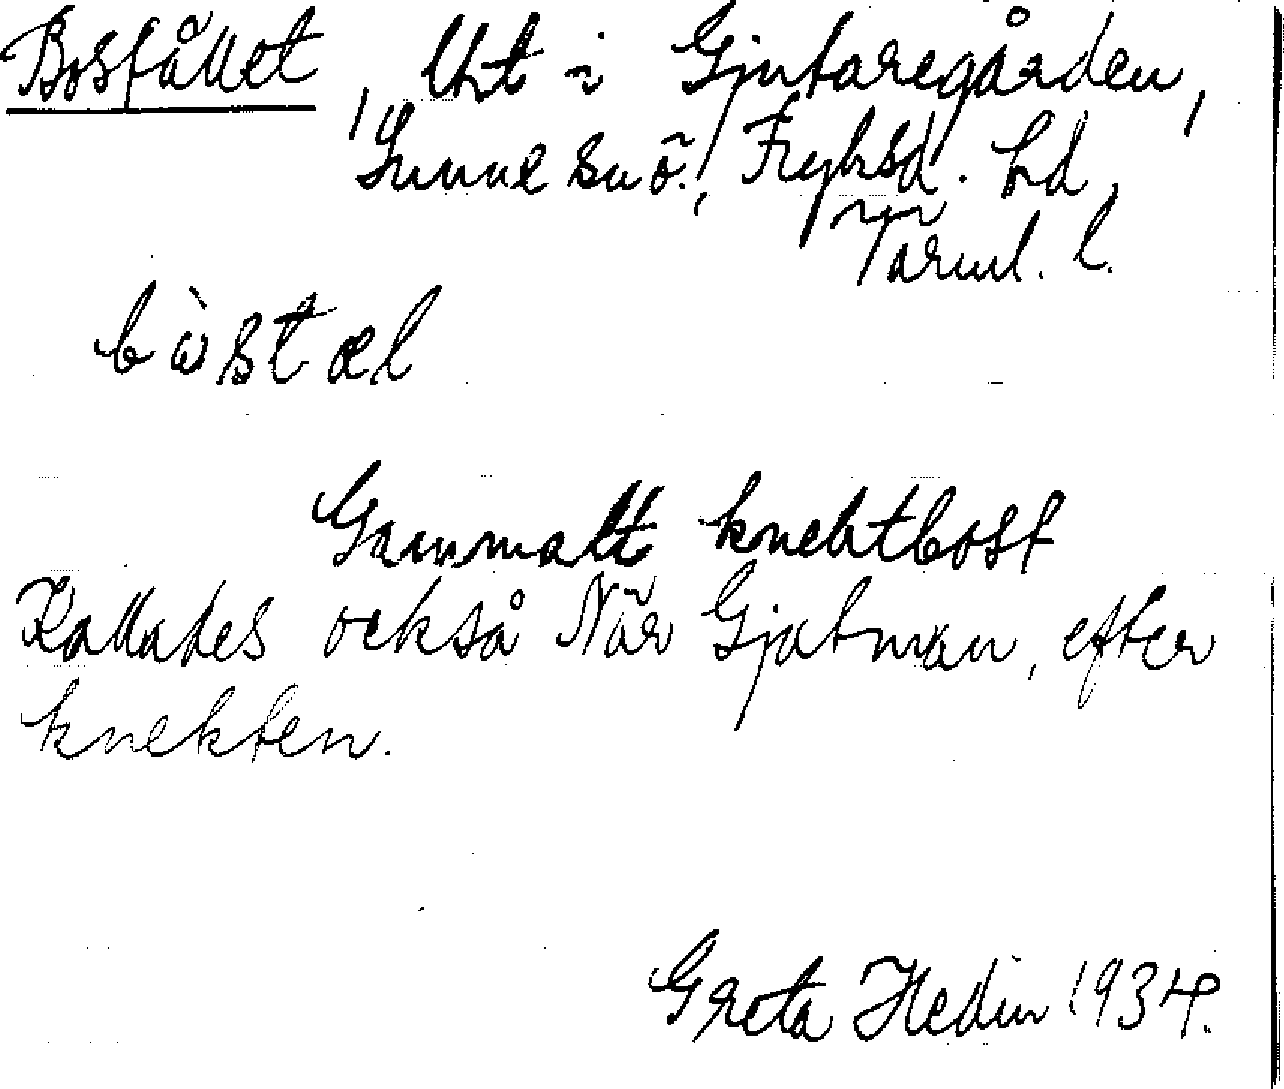 Bosfället, lht i Gjutaregården,
Sunne sn ö., Fryksd. hd,
Värml. l.
bòstæl
Gammalt knektbost
Kallades också När Gjutman, efter
knekten.
Greta Hedin 1934.